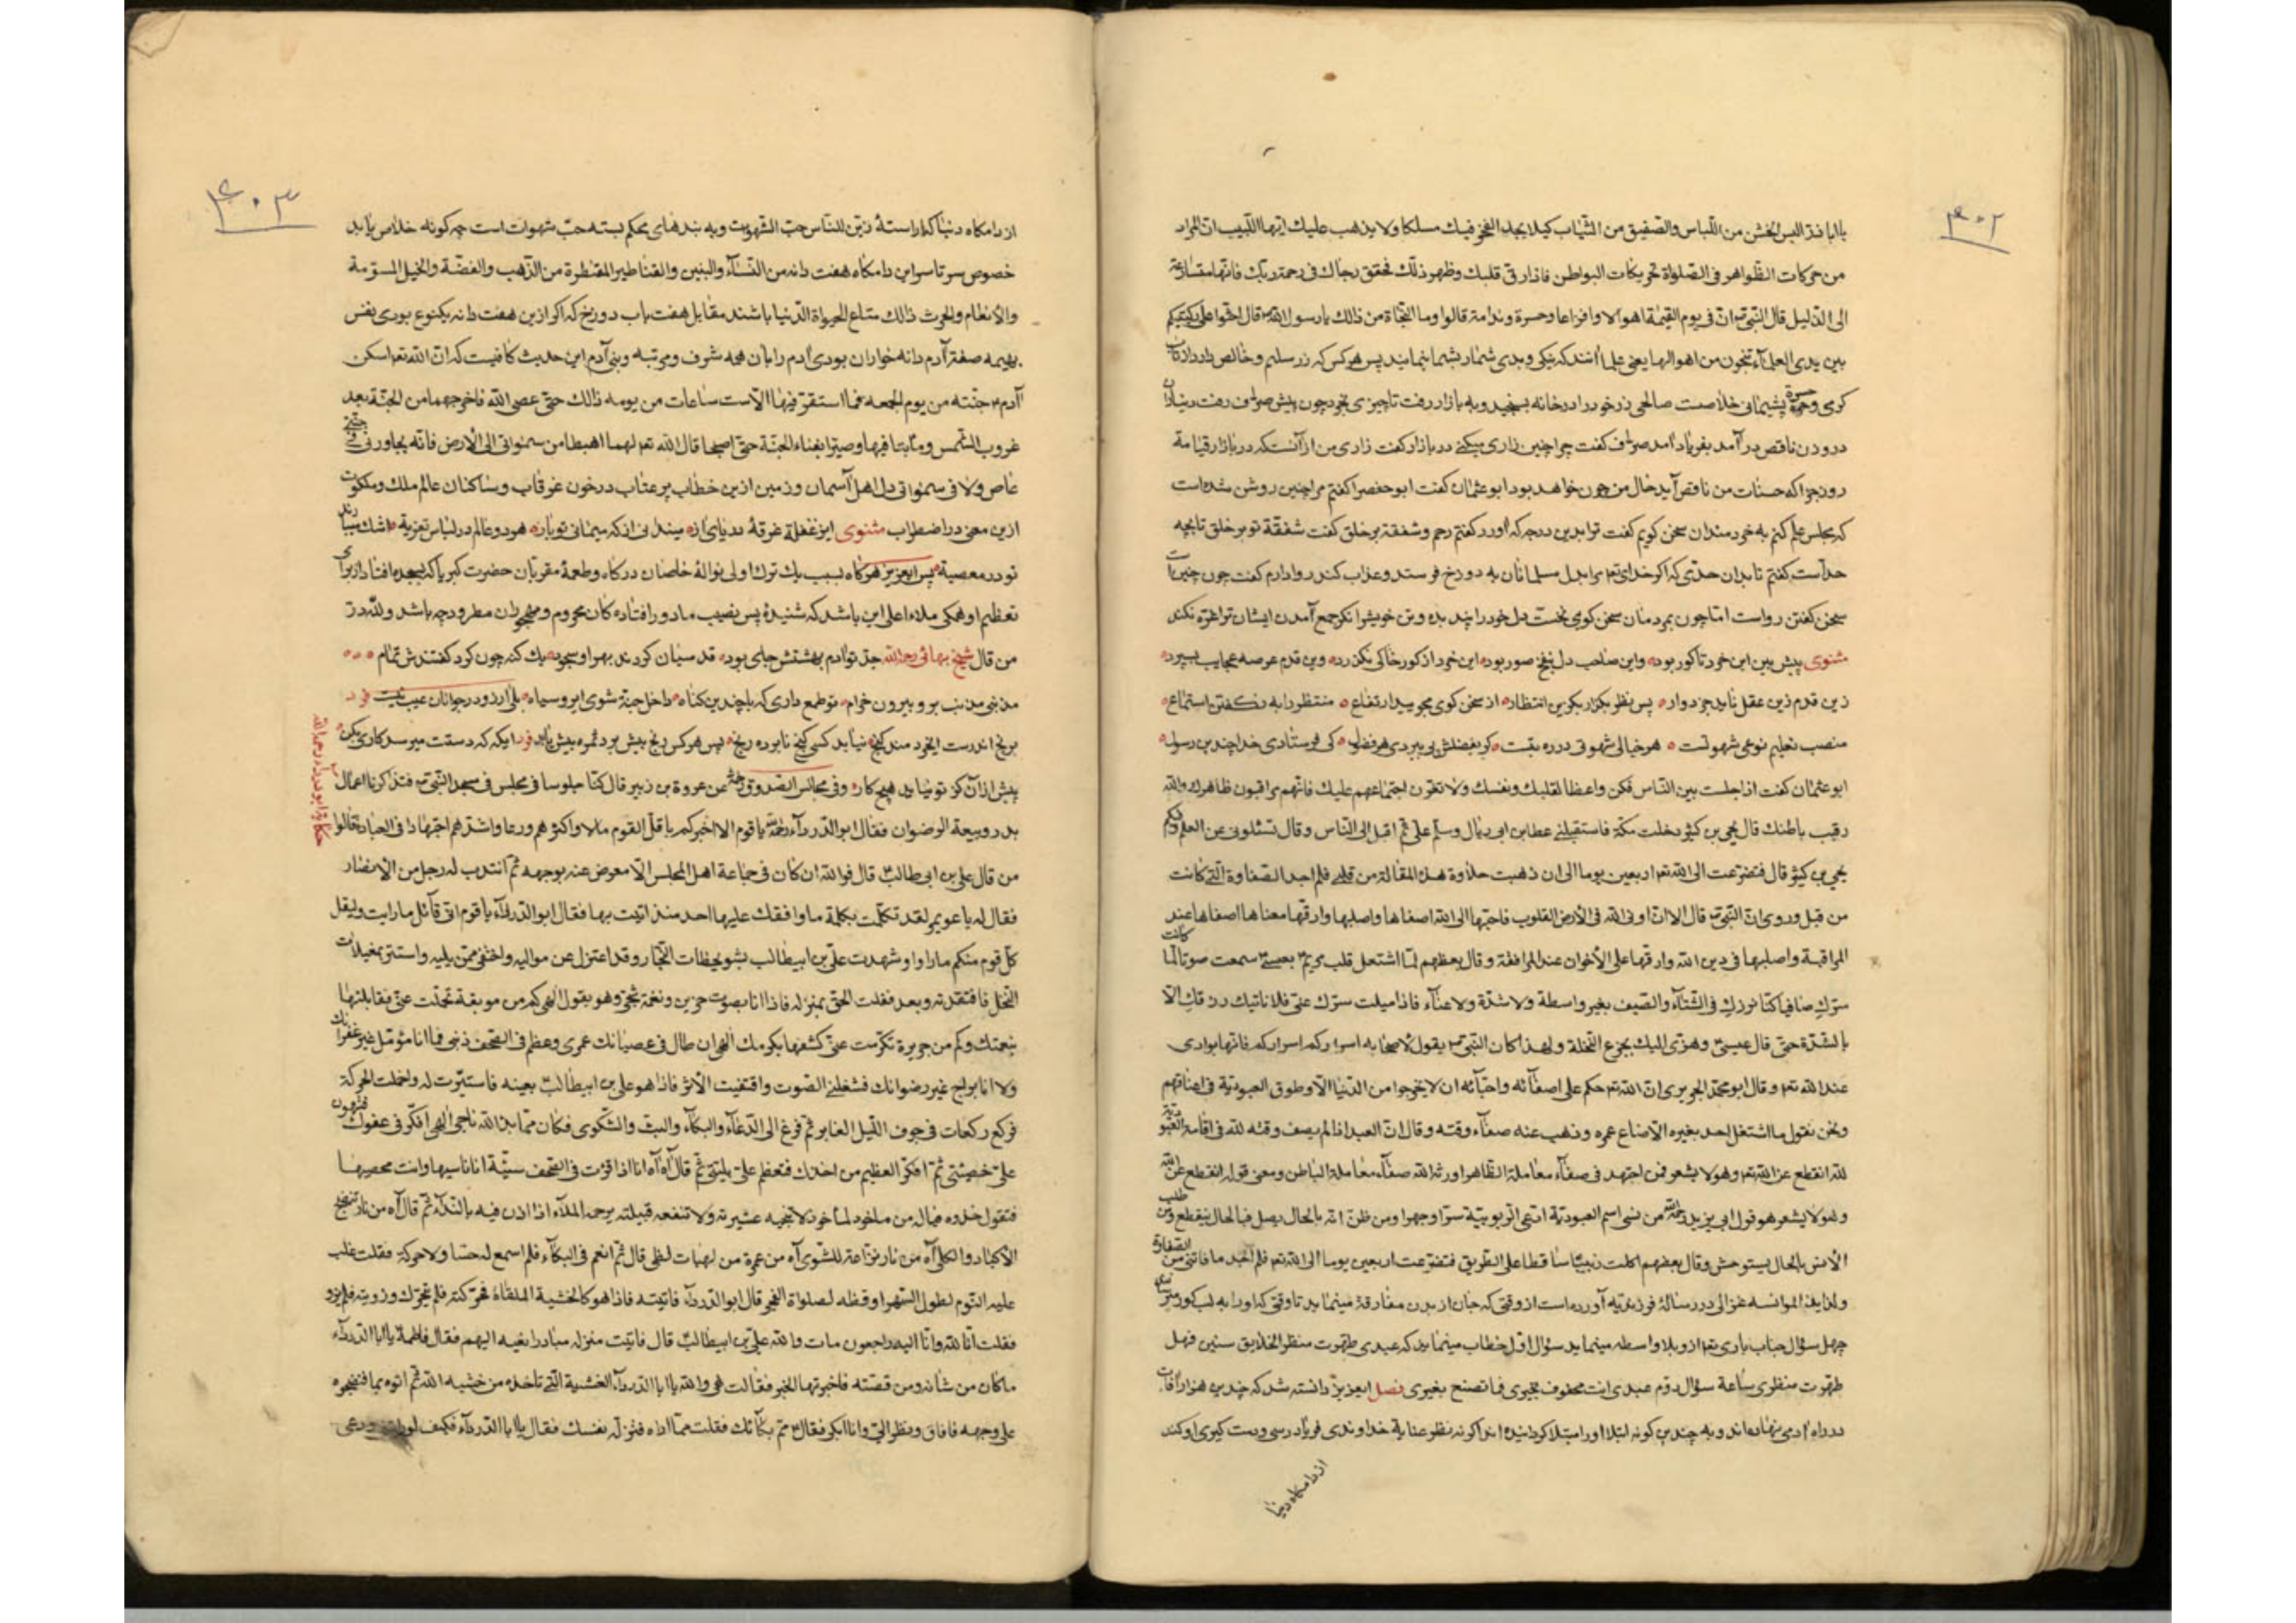 ۴۰۲
یا اباذر البس الخشن من اللباس والصفیق من الثیاب کیلا یجد الفخر فیک مسلکا ولا یذهب علیک ایها اللبیب ان المراد
من حرکات الظواهر فی الصلواة تحریکات البواطن فاذا رق قلبک وظهر ذلک فحقق رجاک فی رحمة ربک فانها
الی الذلیل قال النبی ص ان فی یوم القیمة اهوالا وافزاعا وحسرة وندامة قالوا وما النجاة من ذالک یا رسول الله قال اجثوا علی رکبتیکم
بین یدی العلمآء تنجون من اهوالها یعنی علما آنند که نیکی وبدی شما را بشما نمایند پس هر کس که زر سلیم وخالص دارد از
کرمی وحسرة پشیمانی خلاصست صالحی زر خود را در خانه بسنجید وبه بازار رفت تا چیزی بخرد چون پیش صراف رفت دینار
در وزن ناقص در آمد بفریاد آمد صراف کفت چرا چنین زاری میکنی در بازار کفت زاری من از آنستکه در بازار قیامة
روز جزا که حسنات من ناقص آید حال من چون خواهد بود ابو عثمان کفت ابو حفص را کفتم مرا چنین روشن شده است
که مجلس علم کنم به خردمندان سخن کویم کفت ترا بدین درجه که آورد کفتم رحم وشفقة بر خلق کفت شفقة تو بر خلق تا بچه
حد است کفتم تا بدان حدی که اکر خدای تع مرا بدل مسلمانان به دوزخ فرستد وعذاب کند روا دارم کفت چون چنین است
سخن کفتن رواست اما چون بمردمان سخن کوی نخست دل خود را پند بده وتن خویش را نکر جمع آمدن ایشان ترا غره نکند
مثنوی پیش بین این خرد تا کور بود واین صاحب دل بنفخ صور بود این خرد از کور خاکی نکذرد وین قدم عرصه عجایب بسپرد
زین قدم زین عقل نباید جز دوار پس نظر بکذار بکزین انتظار از سخن کوی مجویید ارتفاع منتظر را به ز کفتن استماع
منصب تعلیم نوعی شهوتست هر خیالی شهوتی در ره بتست کر بفضلش پی ببردی هر فضول کی فرستادی خدا چندین رسول
ابو عثمان کفت اذا جلست بین الناس فکن واعظا لقلبک ونفسک ولا تغرن اجتماعهم علیک فانهم یراقبون ظاهرک والله
رقیب باطنک قال یحیی بن کثیر دخلت مکة فاستقبلنی عطا بن ابی رباح وسلم علی ثم اقبل الی الناس وقال تسئلونی عن العلم وفیکم
یحیی بن کثیر قال فتضرعت الی الله تع اربعین یوما الی ان ذهبت حلاوة هذه المقالة من قلبی فلم اجد الصفاوة التی کانت
من قبل وروی ان النبی ص قال الا ان اوانی الله فی الارض القلوب فاحبها الی الله اصفاها واصلبها وارقها معناها اصفاها عند
المراقبة واصلبها فی دین الله وارقها علی الاخوان عند المرافقة وقال بعظهم لما اشتعل قلب مریم بعیسی سمعت صوتا لما کانت
سرک صافیا کنا نرزک فی الشتآء والصیف بغیر واسطة ولا شدة ولا عنآء فاذا میلت سرک عنی فلا ناتیک رزقک الا
بالشدة حتی قال عیسی وهزی الیک بجزع النخلة ولهذا کان النبی ص یقول لاصحابه اسرارکم اسرارکم فانها بوادی
عند الله تع وقال ابو محمد الجریری ان الله تع حکم علی اصفیائه واحبائه ان لا یخرجوا من الدنیا الا وطوق العبودیة فی اعناقهم
ونحن نقول ما اشتغل احد بغیره الا ضاع عمره وذهب عنه صفآء وقته وقال ان العبد اذا لم یصف وقته لله فی اقامة العبودیة
لله انقطع عن الله تع وهو لا یشعر فمن اجتهد فی صفآء معاملة الظاهر اورثه الله صفآء معاملة الباطن ومعنی قوله انقطع عن الله
وهو لا یشعر هو قول ابی یزید من نسی اسم العبودیة ادعی الربوبیة سرا وجهرا ومن ظن انه بالحال یصل فبالحال ینقطع ومن طلب
الانس بالحال یستوحش وقال بعضهم اکلت زبیبا ساقطا علی الطریق فتضرعت اربعین یوما الی الله تع فلم اجد ما فاتنی من الصفاوة
ولذایذ الموانسه غزالی در رسالهٔ آورده است از وقتی که جان از بدن مفارقة مینماید تا وقتی که او را به لب کور
چهل سؤال جناب باری تع از و بلا واسطه مینماید سؤال اول خطاب مینماید که عبدی طهرت منظر الخلایق سنین فهل
طهرت منظری ساعة سؤال دوم عبدی انت محفوف بخیری فما تصنع بغیری فصل ایعزیز دانسته شد که چندین هزار آفات
در راه آدمی نهاده اند وبه چندین کونه ابتلا او را مبتلا کردانیده اند اکر نه نظر عنایة خداوندی فریاد رسی ودست کیری او کند
از دامکاه دنیا
۴۰۳
از دامکاه دنیا که آراستهٔ زین للناس حب الشهوت وبه بندهای محکم بسته حب شهوات است چه کونه خلاص یابد
خصوص سرتاسر این دامکاه هفت دانه من النسآء والبنین والقناطیر المقنطرة من الذهب والفضة والخیل المسومة
والانعام والحرث ذالک متاع الحیواة الدنیا باشند مقابل هفت باب دوزخ که اکر ازین هفت دانه یکنوع بودی نفس
بهیمه صفة آدم دانه خوار آن بودی آدم را با آن همه شرف ومرتبه وبنی آدم این حدیث کافیست که ان الله تع اسکن
آدم جنته من یوم الجمعه فما استقر فیها الا ست ساعات من یومه ذالک حتی عصی الله فاخرجهما من الجنة بعد
غروب الشمس وما باتا فیها وصیرا بفناء الجنة حتی اصبحا قال الله تع لهما اهبطا من سمواتی الی الارض فانه لا یجاورنی فی جنتی
عاص ولا فی سمواتی دل اهل آسمان وزمین ازین خطاب پر عتاب در خون غرقاب وساکنان عالم ملک وملکوت
ازین معنی در اضطراب مثنوی این غفلة غرقهٔ دریای از میندانی از که میمانی تو باز هر دو عالم در لباس تعزیة اشک میبارند
تو در معصیة پس ایعزیز هر کاه بسبب یک ترک اولی نوالهٔ خاصان درکاه وطعمهٔ مقربان حضرت کبریا که بسجده افتاد از برای
تعظیم او همکی ملاء اعلی این باشد که شنیدهٔ پس نصیب ما دور افتاده کان محروم ومهجوران مطرود چه باشد ولله در
من قال شیخ بهائی رحمه الله جد تو آدم بهشتش جای بود قدسیان کردند بهر او سجود یک کنه چون کرد کفتندش تمام
مذنبی مذنب برو بیرون خرام تو طمع داری که با چندین کناه داخل جنة شوی ای رو سیاه بلی آرزو در جوانان عیب نیست فرد
برنج اندرست ایخردمند کنج نیابد کسی کنج نابرده رنج پس هر کس رنج بیش برد ثمره بیش یابد فرد ایکه که دستت میرسد کاری بکن
پیش از آن کز تو نیاید هیچ کار وفی مجالس الصدوق عن عروة بن زبیر قال کنا جلوسا فی مجلس فی مسجد النبی ص فتذاکرنا اعمال
بدر وبیعة الرضوان فقال ابو الدردآء یا قوم الا اخبرکم باقل القوم مالا واکثرهم ورعا واشدهم اجتهادا فی العبادة قالوا
من قال علی بن ابی طالب قال فوالله ان کان فی جماعة اهل المجلس الا معرض عنه بوجهه ثم انتدب له رجل من الانصار
فقال له یا عویمر لقد تکلمت بکلمة ما وافقک علیها احد منذ اتیت بها فقال ابو الدردآء یا قوم انی قآئل ما رایت ولیقل
کل قوم منکم ما راوا وشهدت علی بن ابیطالب بشویحطات النجار وقد اعتزل عن موالیه واختفی ممن یلیه واستتر بمغیلات
النخل فافتقدته وبعد فقلت الحق بمنزله فاذا انا بصوت حزین ونغمة شجی وهو یقول الهی کم من موبقة تحملت عنی فقابلتها
بنعمتک وکم من جریرة تکرمت عنی کشفها بکرمک الهی ان طال فی عصیانک عمری وعظم فی الصحف ذنبی فما انا مؤمل غیر غفرانک
ولا انا براج غیر رضوانک فشغلنی الصوت واقتفیت الاثر فاذا هو علی بن ابیطالب بعینه فاستترت له واخملت الحرکة
فرکع رکعات فی جوف اللیل الغابر ثم فرغ الی الدعآء والبکآء والبث والشکوی فکان مما به الله ناجی الهی افکر فی عفوک فتهون
علی خطیئتی ثم افکر العظیم من اخذک فتعظم علی بلیتی ثم قال آه آه ان انا قرئت فی الصحف سیئة انا ناسیها وانت محصیها
فتقول خذوه فیاله من ماخوذ لا تنجیه عشیرته ولا تنفعه قبیلته یرحمه الملآء اذا اذن فیه بالندآء ثم قال آه من نار تنضج
الاکباد والکلی آه من نار نزاعة للشوی آه من غمرة من لهبات لظی قال ثم انعم فی البکآء فلم اسمع له حسا ولا حرکة فقلت غلب
علیه النوم لطول السهر اوقظه لصلواة الفجر قال ابو الدردآء فاتیته فاذا هو کالخشبة الملقاة فحرکته فلم یتحرک وزویته فلم ینزو
فقلت انا لله وانا الیه راجعون مات والله علی بن ابیطالب قال فاتیت منزله مبادرا بغیه الیهم فقال فاطمة یا ابا الدردآء
ما کان من شانه ومن قصته فاخبرتها الخبر فقالت هی والله یا ابا الدردآء الغشیة التی تاخذه من خشیه الله ثم اتوه بمآ فنضحوه
علی وجهه فافاق ونظر الی وانا ابکی فقال مم بکآئک فقلت مما اراه فتنزله بنفسک فقال یا ابا الدردآء فکیف لو رایتنی ودعی
حکایة ابو دردآء رحمه الله